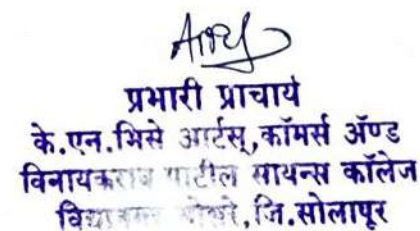 प्रभारी प्राचार्य
के.एन.भिसे आर्टस्,कॉमर्स ॲण्ड
विनायकराव पाटील सायन्स कॉलेज
जि.सोलापूर